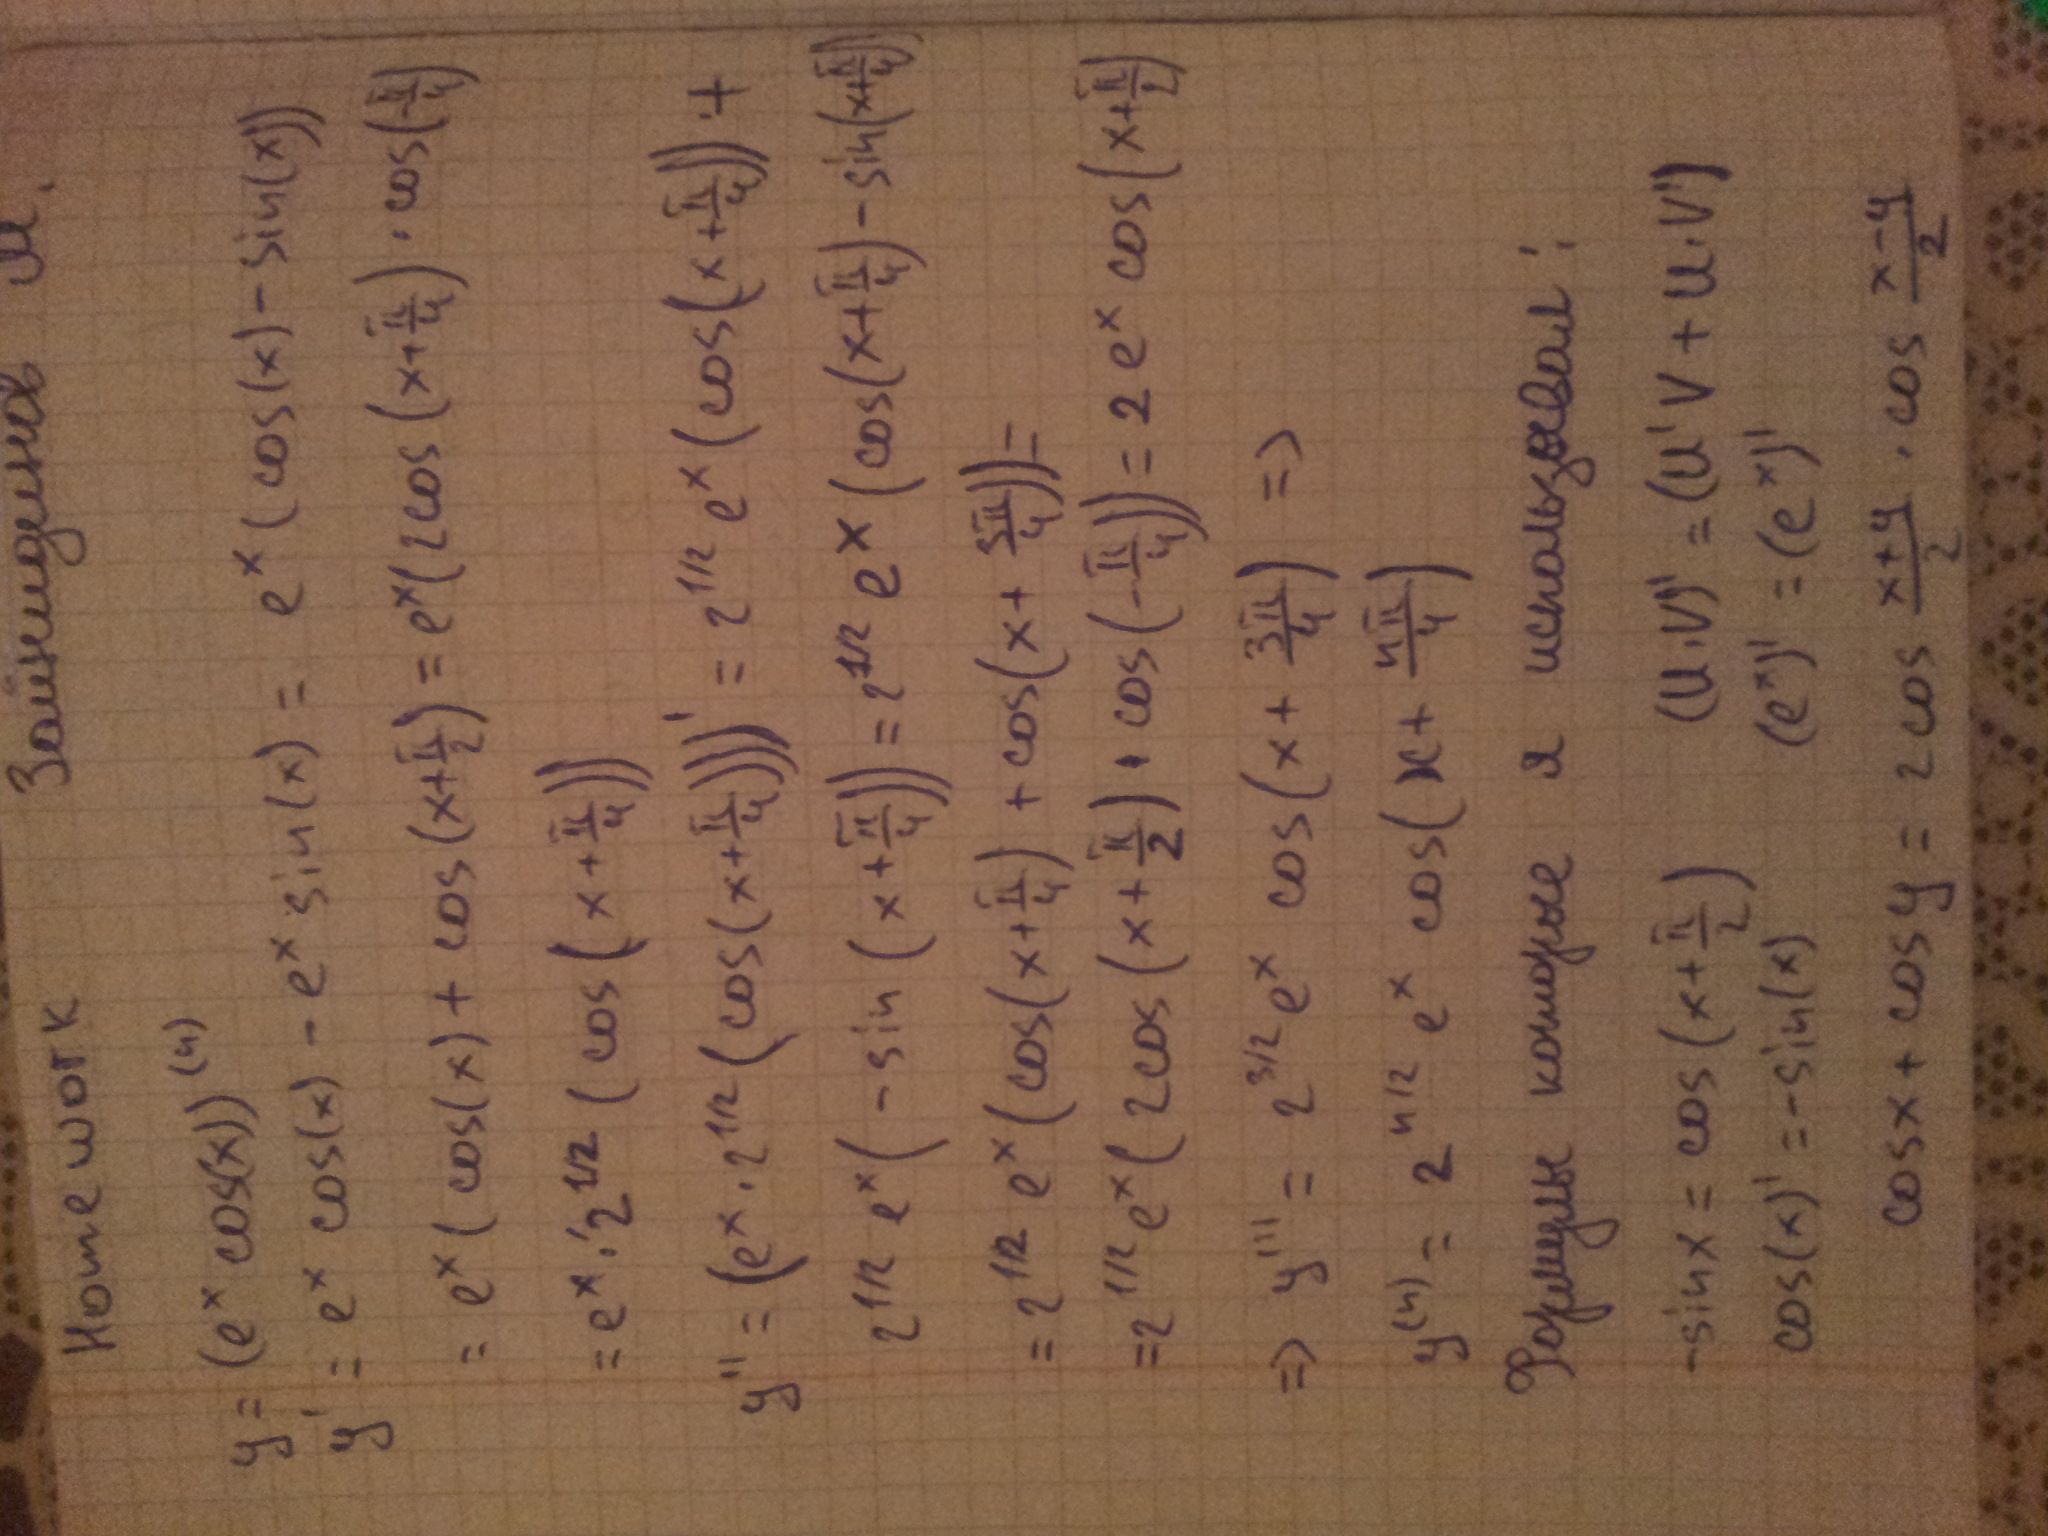 Homework Зайнидинов М.
y = (e^x cos(x))^(n)
y' = e^x cos(x) - e^x sin(x) = e^x (cos(x) - sin(x))
= e^x (cos(x) + cos(x+π/2) = e^x (2cos(x+π/4) · cos(-π/4)
= e^x · 2^1/2 (cos(x+π/4))
y'' = (e^x · 2^1/2 (cos(x+π/4)))' = 2^1/2 e^x (cos(x+π/4)) +
2^1/2 e^x (-sin(x+π/4)) = 2^1/2 e^x (cos(x+π/4) - sin(x+π/4))
= 2^1/2 e^x (cos(x+π/4) + cos(x+3π/4)) =
= 2^1/2 e^x (2cos(x+π/2) · cos(-π/4)) = 2 e^x cos(x+π/2)
=> y''' = 2^3/2 e^x cos(x+3π/4) =>
y^(n) = 2^n/2 e^x cos(x+nπ/4)
Формулы которые я использывал:
-sinx = cos(x+π/2) (U·V)' = (U'V + U·V')
cos(x)' = -sin(x) (e^x)' = (e^x)'
cosx + cosy = 2cos x+y/2 · cos x-y/2